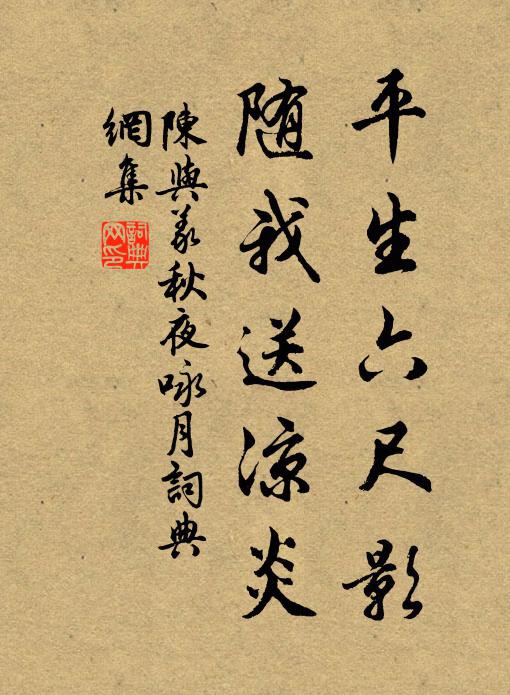 平生六尺影
随我送凉炎
陳與義秋夜咏月詞典
網集
詞典網印